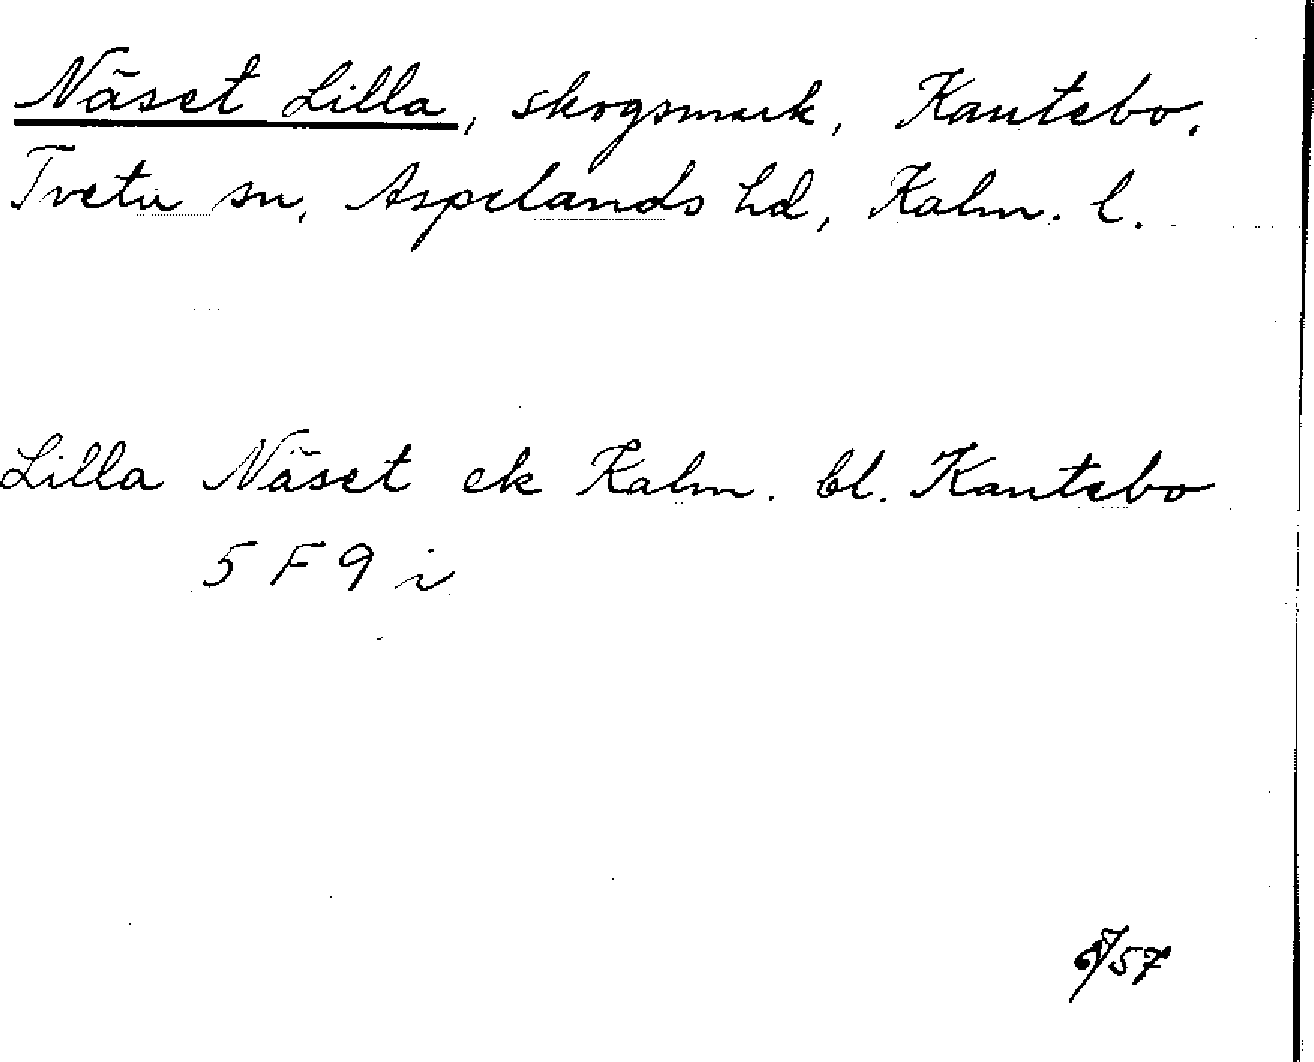 Näset Lilla, skogsmark, Kantebo.
Tveta sn, Aspelands hd, Kalm. l.
Lilla Näset ek Kalm. bl. Kantebo
5 F 9 i
/57